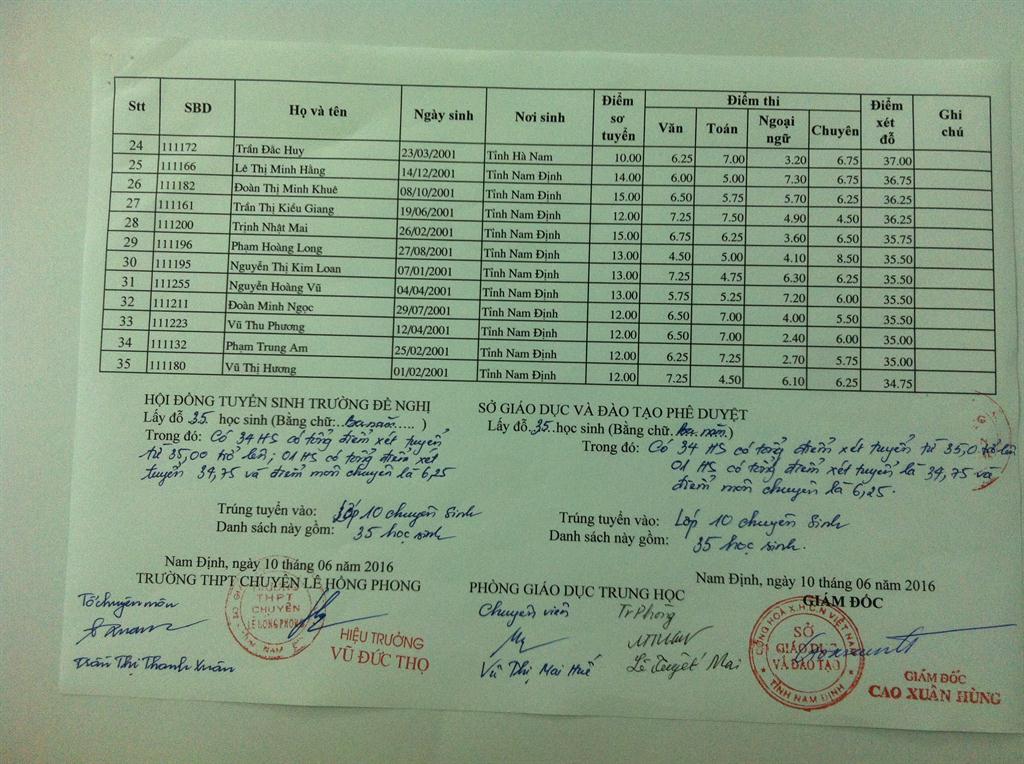 Stt SBD Họ và tên Ngày sinh Nơi sinh Điểm sơ tuyển Điểm thi Điểm xét đỗ Ghi chú
Văn Toán Ngoại ngữ Chuyên
24 111172 Trần Đăc Huy 23/03/2001 Tỉnh Hà Nam 10.00 6.25 7.00 3.20 6.75 37.00
25 111166 Lê Thị Minh Hằng 14/12/2001 Tỉnh Nam Định 14.00 6.00 5.00 7.30 6.75 36.75
26 111182 Đoàn Thị Minh Khuê 08/10/2001 Tỉnh Nam Định 15.00 6.50 5.75 5.70 6.25 36.25
27 111161 Trần Thị Kiều Giang 19/06/2001 Tỉnh Nam Định 12.00 7.25 7.50 4.90 4.50 36.25
28 111200 Trịnh Nhật Mai 26/02/2001 Tỉnh Nam Định 15.00 6.75 6.25 3.60 6.50 35.75
29 111196 Phạm Hoàng Long 27/08/2001 Tỉnh Nam Định 13.00 4.50 5.00 4.10 8.50 35.50
30 111195 Nguyễn Thị Kim Loan 07/01/2001 Tỉnh Nam Định 13.00 7.25 4.75 6.30 6.25 35.50
31 111255 Nguyễn Hoàng Vũ 04/04/2001 Tỉnh Nam Định 13.00 5.75 5.25 7.20 6.00 35.50
32 111211 Đoàn Minh Ngọc 29/07/2001 Tỉnh Nam Định 12.00 6.50 7.00 4.00 5.50 35.50
33 111223 Vũ Thu Phương 12/04/2001 Tỉnh Nam Định 12.00 6.50 7.00 2.40 6.00 35.00
34 111132 Phạm Trung Am 25/02/2001 Tỉnh Nam Định 12.00 6.25 7.25 2.70 5.75 35.00
35 111180 Vũ Thị Hương 01/02/2001 Tỉnh Nam Định 12.00 7.25 4.50 6.10 6.25 34.75
HỘI ĐỒNG TUYỂN SINH TRƯỜNG ĐỀ NGHỊ
Lấy đỗ 35 học sinh (Bằng chữ:..ba năm..... )
Trong đó: Có 34 HS có tổng điểm xét tuyển
từ 35,00 trở lên; 01 HS có tổng điểm xét
tuyển 34,75 và điểm môn chuyên là 6,25
Trúng tuyển vào: Lớp 10 chuyên Sinh
Danh sách này gồm: 35 học sinh
Nam Định, ngày 10 tháng 06 năm 2016
TRƯỜNG THPT CHUYÊN LÊ HỒNG PHONG
Tổ chuyên môn
Trần Thị Thanh Xuân
TRƯỜNG
THPT
CHUYÊN
LÊ HỒNG PHONG
HIỆU TRƯỞNG
VŨ ĐỨC THỌ
SỞ GIÁO DỤC VÀ ĐÀO TẠO PHÊ DUYỆT
Lấy đỗ..35..học sinh (Bằng chữ. ba năm.)
Trong đó: Có 34 HS có tổng điểm xét tuyển từ 35,0 trở lên
01 HS có tổng điểm xét tuyển là 34,75 và
điểm môn chuyên là 6,25.
Trúng tuyển vào: Lớp 10 chuyên Sinh
Danh sách này gồm: 35 học sinh.
PHÒNG GIÁO DỤC TRUNG HỌC
Chuyên viên Tr Phòng
Vũ Thị Mai Huế Lê Tuyết Mai
Nam Định, ngày 10 tháng 06 năm 2016
GIÁM ĐỐC
CỘNG HOÀ X.H.C.N VIỆT NAM
SỞ
GIÁO DỤC
VÀ ĐÀO TẠO
TỈNH NAM ĐỊNH
GIÁM ĐỐC
CAO XUÂN HÙNG